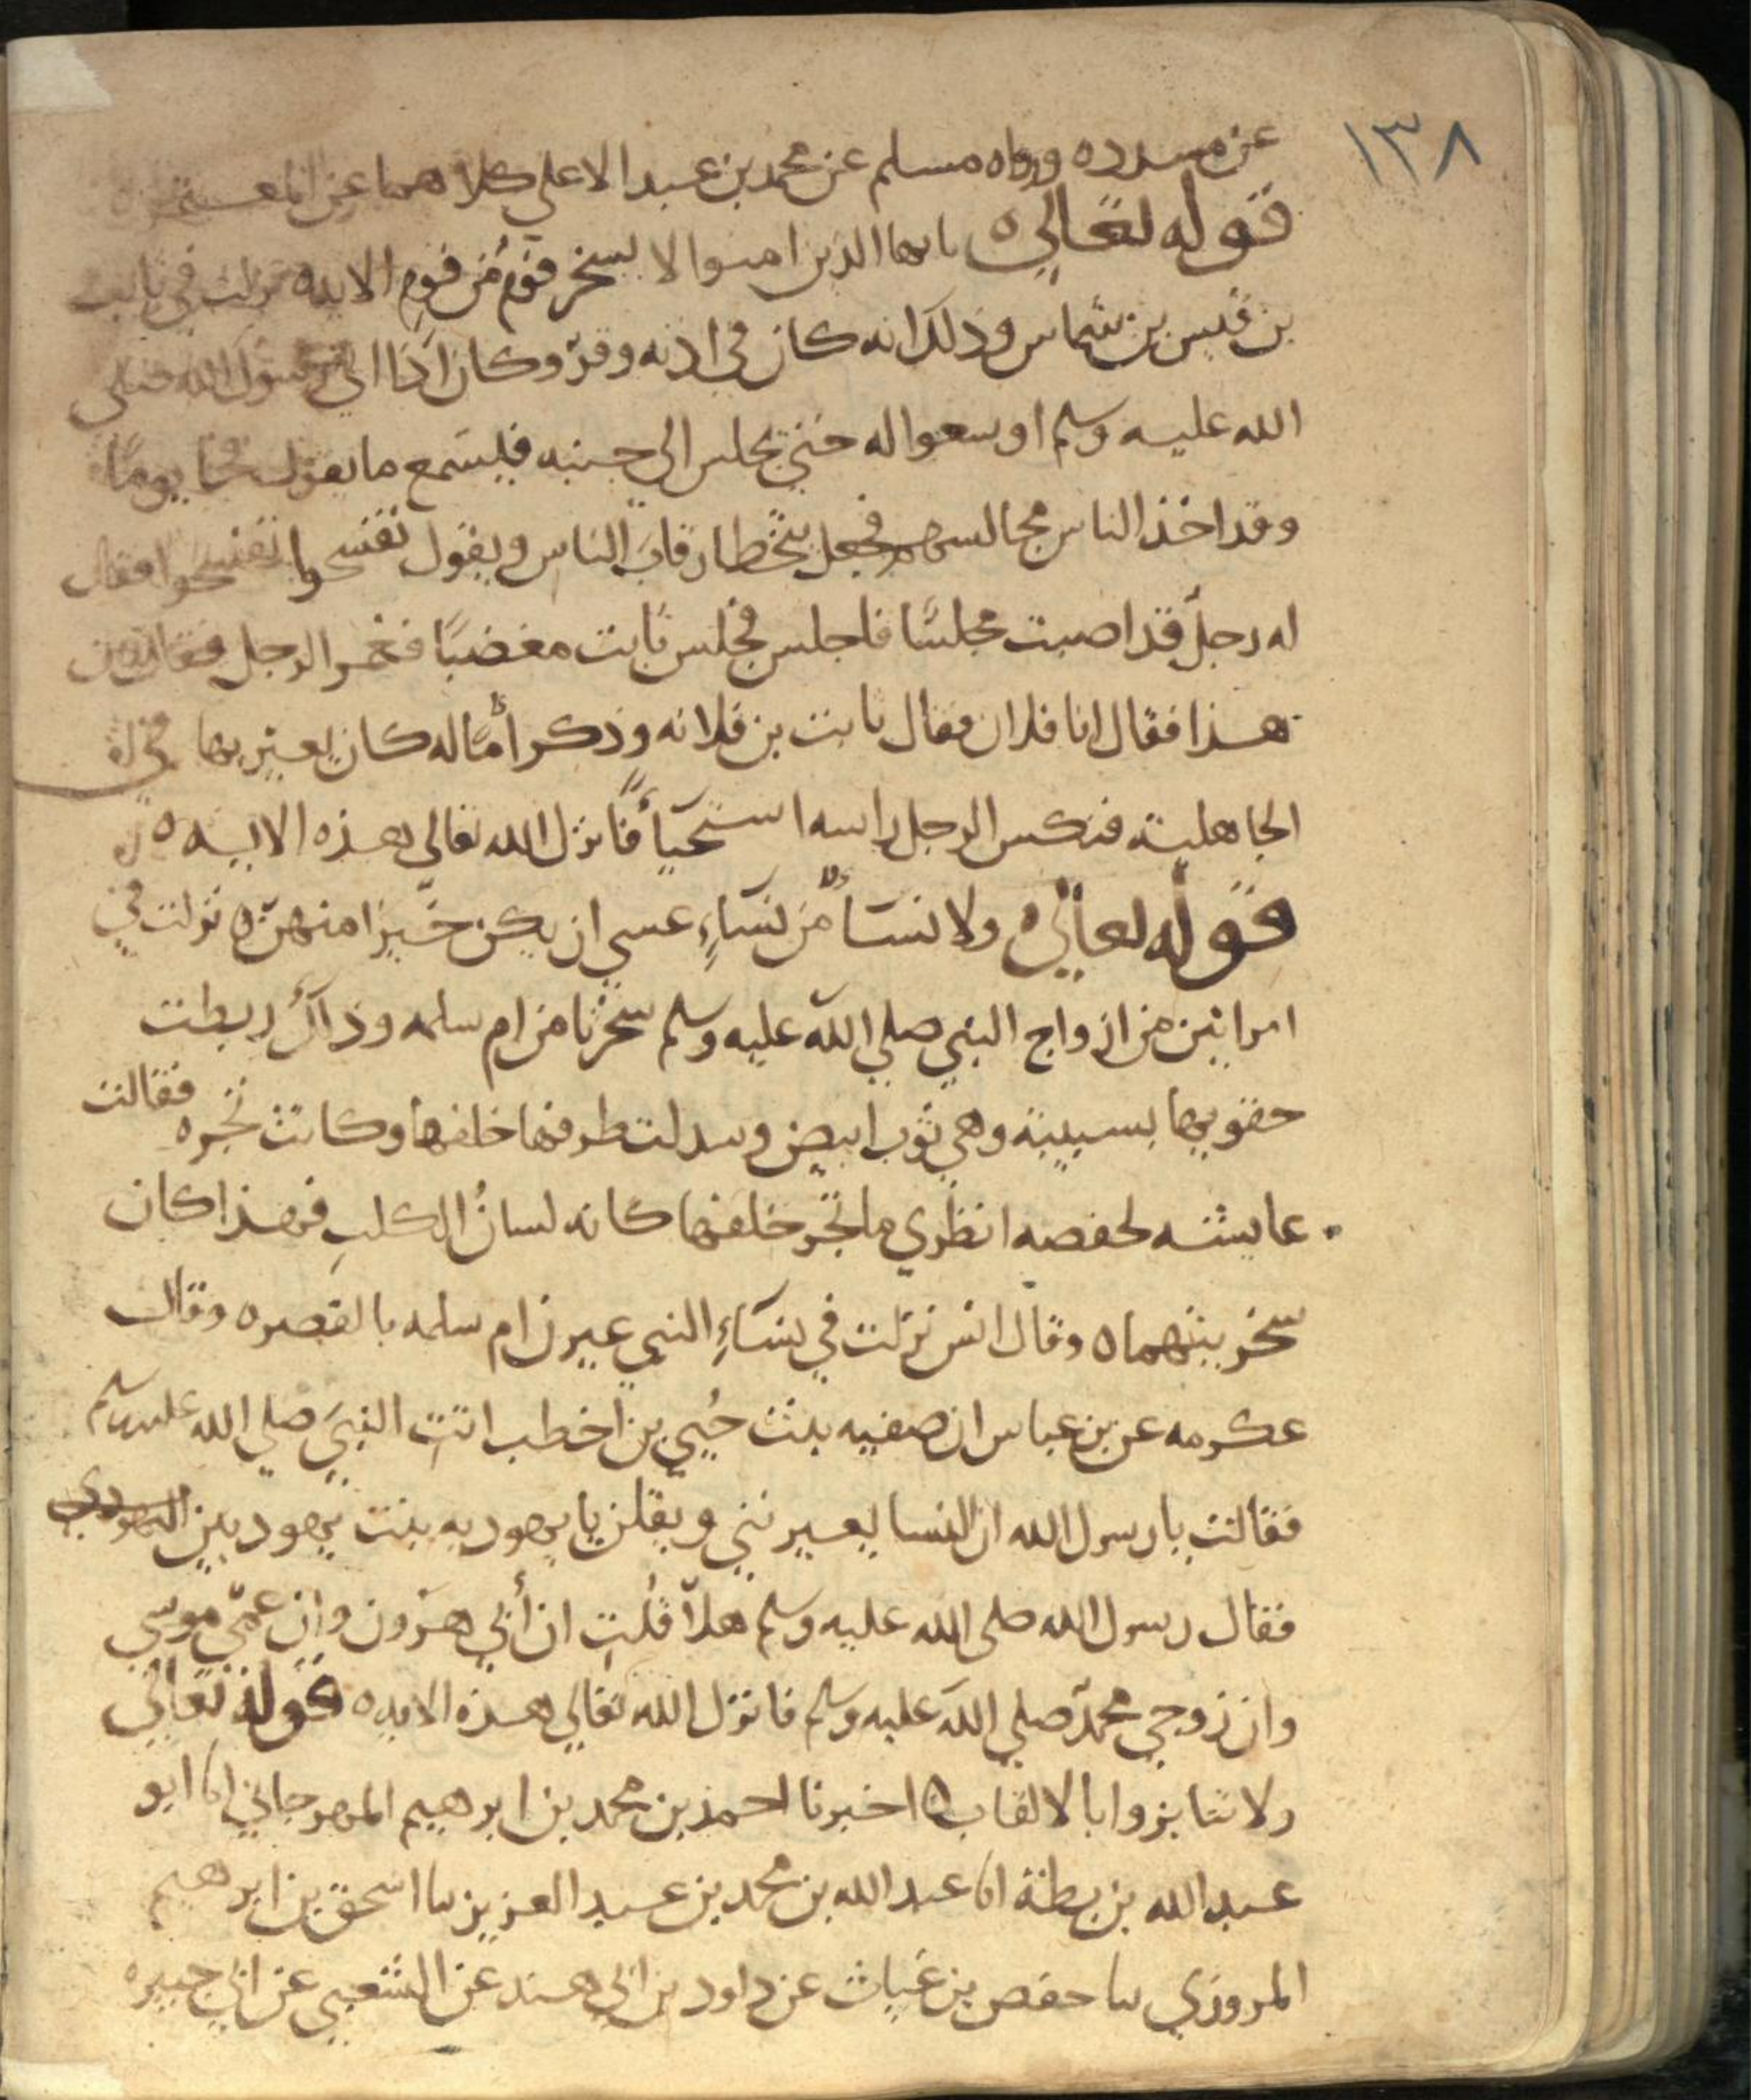 ١٣٨
عن مسدده ورواه مسلم عن محمد بن عبد الاعلي كلاهما عن المعتمر ه
قوله تعالي ه يايها الذين امنوا لا يسخر قومٌ من قومٍ الايه ه نزلت في ثابت
بن قيس بن شماس وذلك انه كان في اذنه وقرٌ وكان اذا اتي رسول الله صلي
الله عليه وسلم اوسعوا له حتي يجلس الي جنبه فيسمع ما يقول فجا يومًا
وقد اخذ الناس مجالسهم فجعل يتخطا رقاب الناس ويقول تفسحوا تفسحوا فقال
له رجل قد اصبت مجلسًا فاجلس فجلس ثابت مغضبًا فغمز الرجل فقال من
هذا فقال انا فلان فقال ثابت بن فلانه وذكر أمًا له كان يعير بها في
الجاهلية فنكس الرجل راسه استحيأً فانزل الله تعالي هذه الايه ه
قوله تعالي ه ولا نسآءٌ من نسآءٍ عسي ان يكن خيرا منهن ه نزلت في
امراتين من ازواج النبي صلي الله عليه وسلم سخرتا من ام سلمه وذلك ربطت
حقويها بسبيبة وهي ثوب ابيض وسدلت طرفها خلفها وكانت تجره فقالت
عايشه لحفصه انظري ما تجر خلفها كانه لسانُ الكلبِ فهذا كان
سخريتهما ه وقال انس نزلت في نسآءِ النبي عيرن ام سلمه بالقصر ه وقال
عكرمه عن بن عباس ان صفيه بنت حُيي بن اخطب اتت النبي صلي الله عليه وسلم
فقالت يا رسول الله ان النسا يعيرنني ويقلن يا يهوديه بنت يهوديين
فقال رسول الله صلي الله عليه وسلم هلا قلتِ ان أبي هرون وان عمي موسي
وان زوجي محمد صلي الله عليه وسلم فانزل الله تعالي هذه الايه ه قوله تعالي
ولا تنابزوا بالالقاب ه اخبرنا احمد بن محمد بن ابرهيم المهرجاني انا ابو
عبد الله بن بطة انا عبد الله بن محمد بن عبد العزيز نا اسحق بن ابرهيم
المروزي نا حفص بن غياث عن داود بن ابي هند عن الشعبي عن ابي جبيره